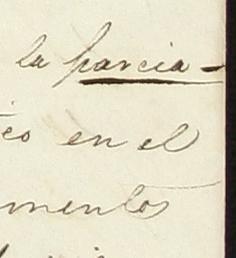 la parcia-
co en el
mentos